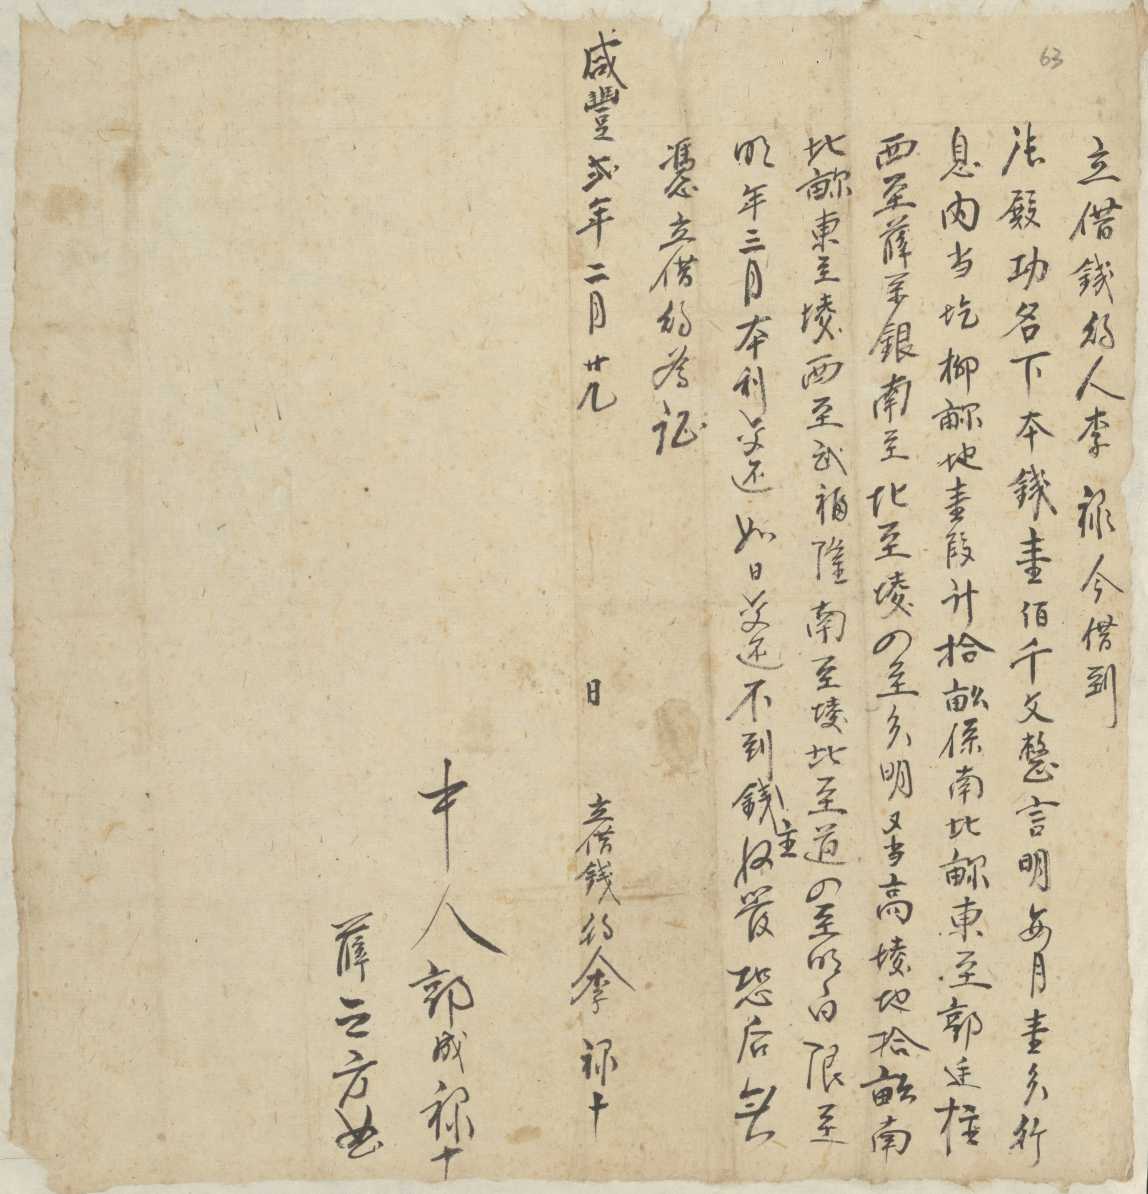 63
立借錢約人李祿今借到
張殿功名下本錢壹佰千文整言明每月壹分行
息內当圪柳畛地壹段计拾畝係南北畛東至郭廷柱
西至薛望銀南至北至堎四至分明又当高堎地拾畝南
北畛東至堎西至武福隆南至堎北至道四至明白限至
明年三月本利交还如日交还不到錢主收管恐后無
憑立借約為证
咸豐弍年二月廿九日 立借錢約人李祿十
中人郭成祿十
薛三方書